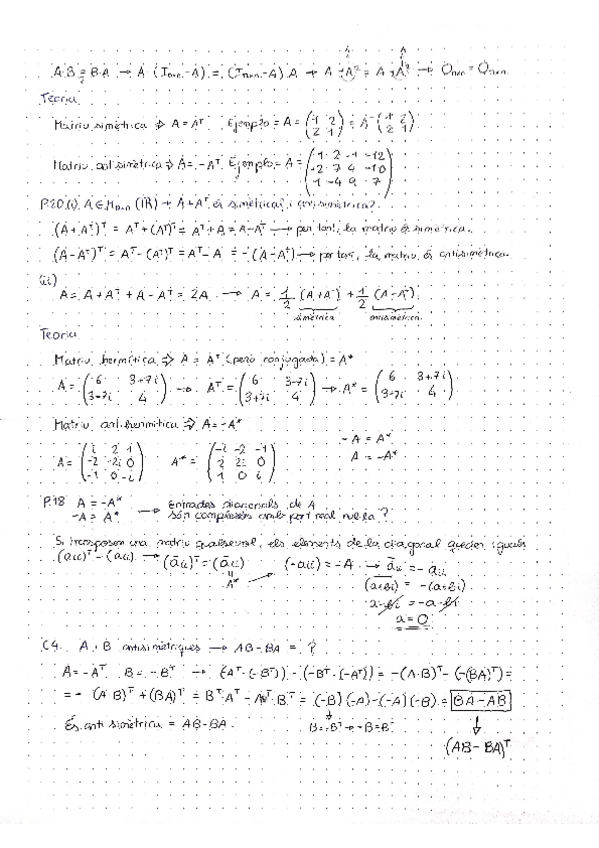 A·B = B·A → A (Inxn - A) = (Inxn - A) A → A - A² = A - A² → Onxn = Onxn
Teoria
Matriu simètrica ⇒ A = Aᵀ Ejemplo = A = (1 2; 2 1) = Aᵀ (1 2; 2 1)
Matriu antisimètrica ⇒ A = -Aᵀ Ejemplo = A =
P.20 (i) A ∈ Mnxn (IR) → A + Aᵀ és simètrica? i antisimètrica?
(A + Aᵀ)ᵀ = Aᵀ + (Aᵀ)ᵀ = Aᵀ + A = A - Aᵀ → per tant, la matriu és simètrica.
(A - Aᵀ)ᵀ = Aᵀ - (Aᵀ)ᵀ = Aᵀ - A = -(A - Aᵀ) → per tant, la matriu és antisimètrica.
(ii)
A = A + Aᵀ + A - Aᵀ = 2A → A = 1/2 (A + Aᵀ) + 1/2 (A - Aᵀ)
simètrica antisimètrica
Teoria
Matriu hermítica ⇒ A = Aᵀ (però conjugada) = A*
A = (6 3+7i; 3-7i 4) → Aᵀ = (6 3-7i; 3+7i 4) → A* = (6 3+7i; 3-7i 4)
Matriu antihermítica ⇒ A = -A*
-A = A*
A = -A*
A = (i 2 1; -2 -2i 0; -1 0 -i) A* = (-i -2 -1; 2 2i 0; 1 0 i)
P.18 A = -A* → Entrades diagonals de A
-A = A* són complexos amb part real nul·la?
Si transposem una matriu qualsevol, els elements de la diagonal queden iguals
(aii)ᵀ = (aii) → (āii)ᵀ = (āii) (-aii) = -A → āii = -aii
A* (a+bi) = -(a+bi)
a - bi = -a - bi
a = 0
C4. A i B antisimètriques → AB - BA = ?
A = -Aᵀ B = -Bᵀ → (Aᵀ·(-Bᵀ)) - (-Bᵀ·(-Aᵀ)) = -(A·B)ᵀ - (-(BA)ᵀ) =
= -(A·B)ᵀ + (BA)ᵀ = Bᵀ·Aᵀ - Aᵀ·Bᵀ = (-B)(-A) - (-A)(-B) = BA - AB
És antisimètrica = AB - BA. B = -Bᵀ → -B = Bᵀ
(AB - BA)ᵀ